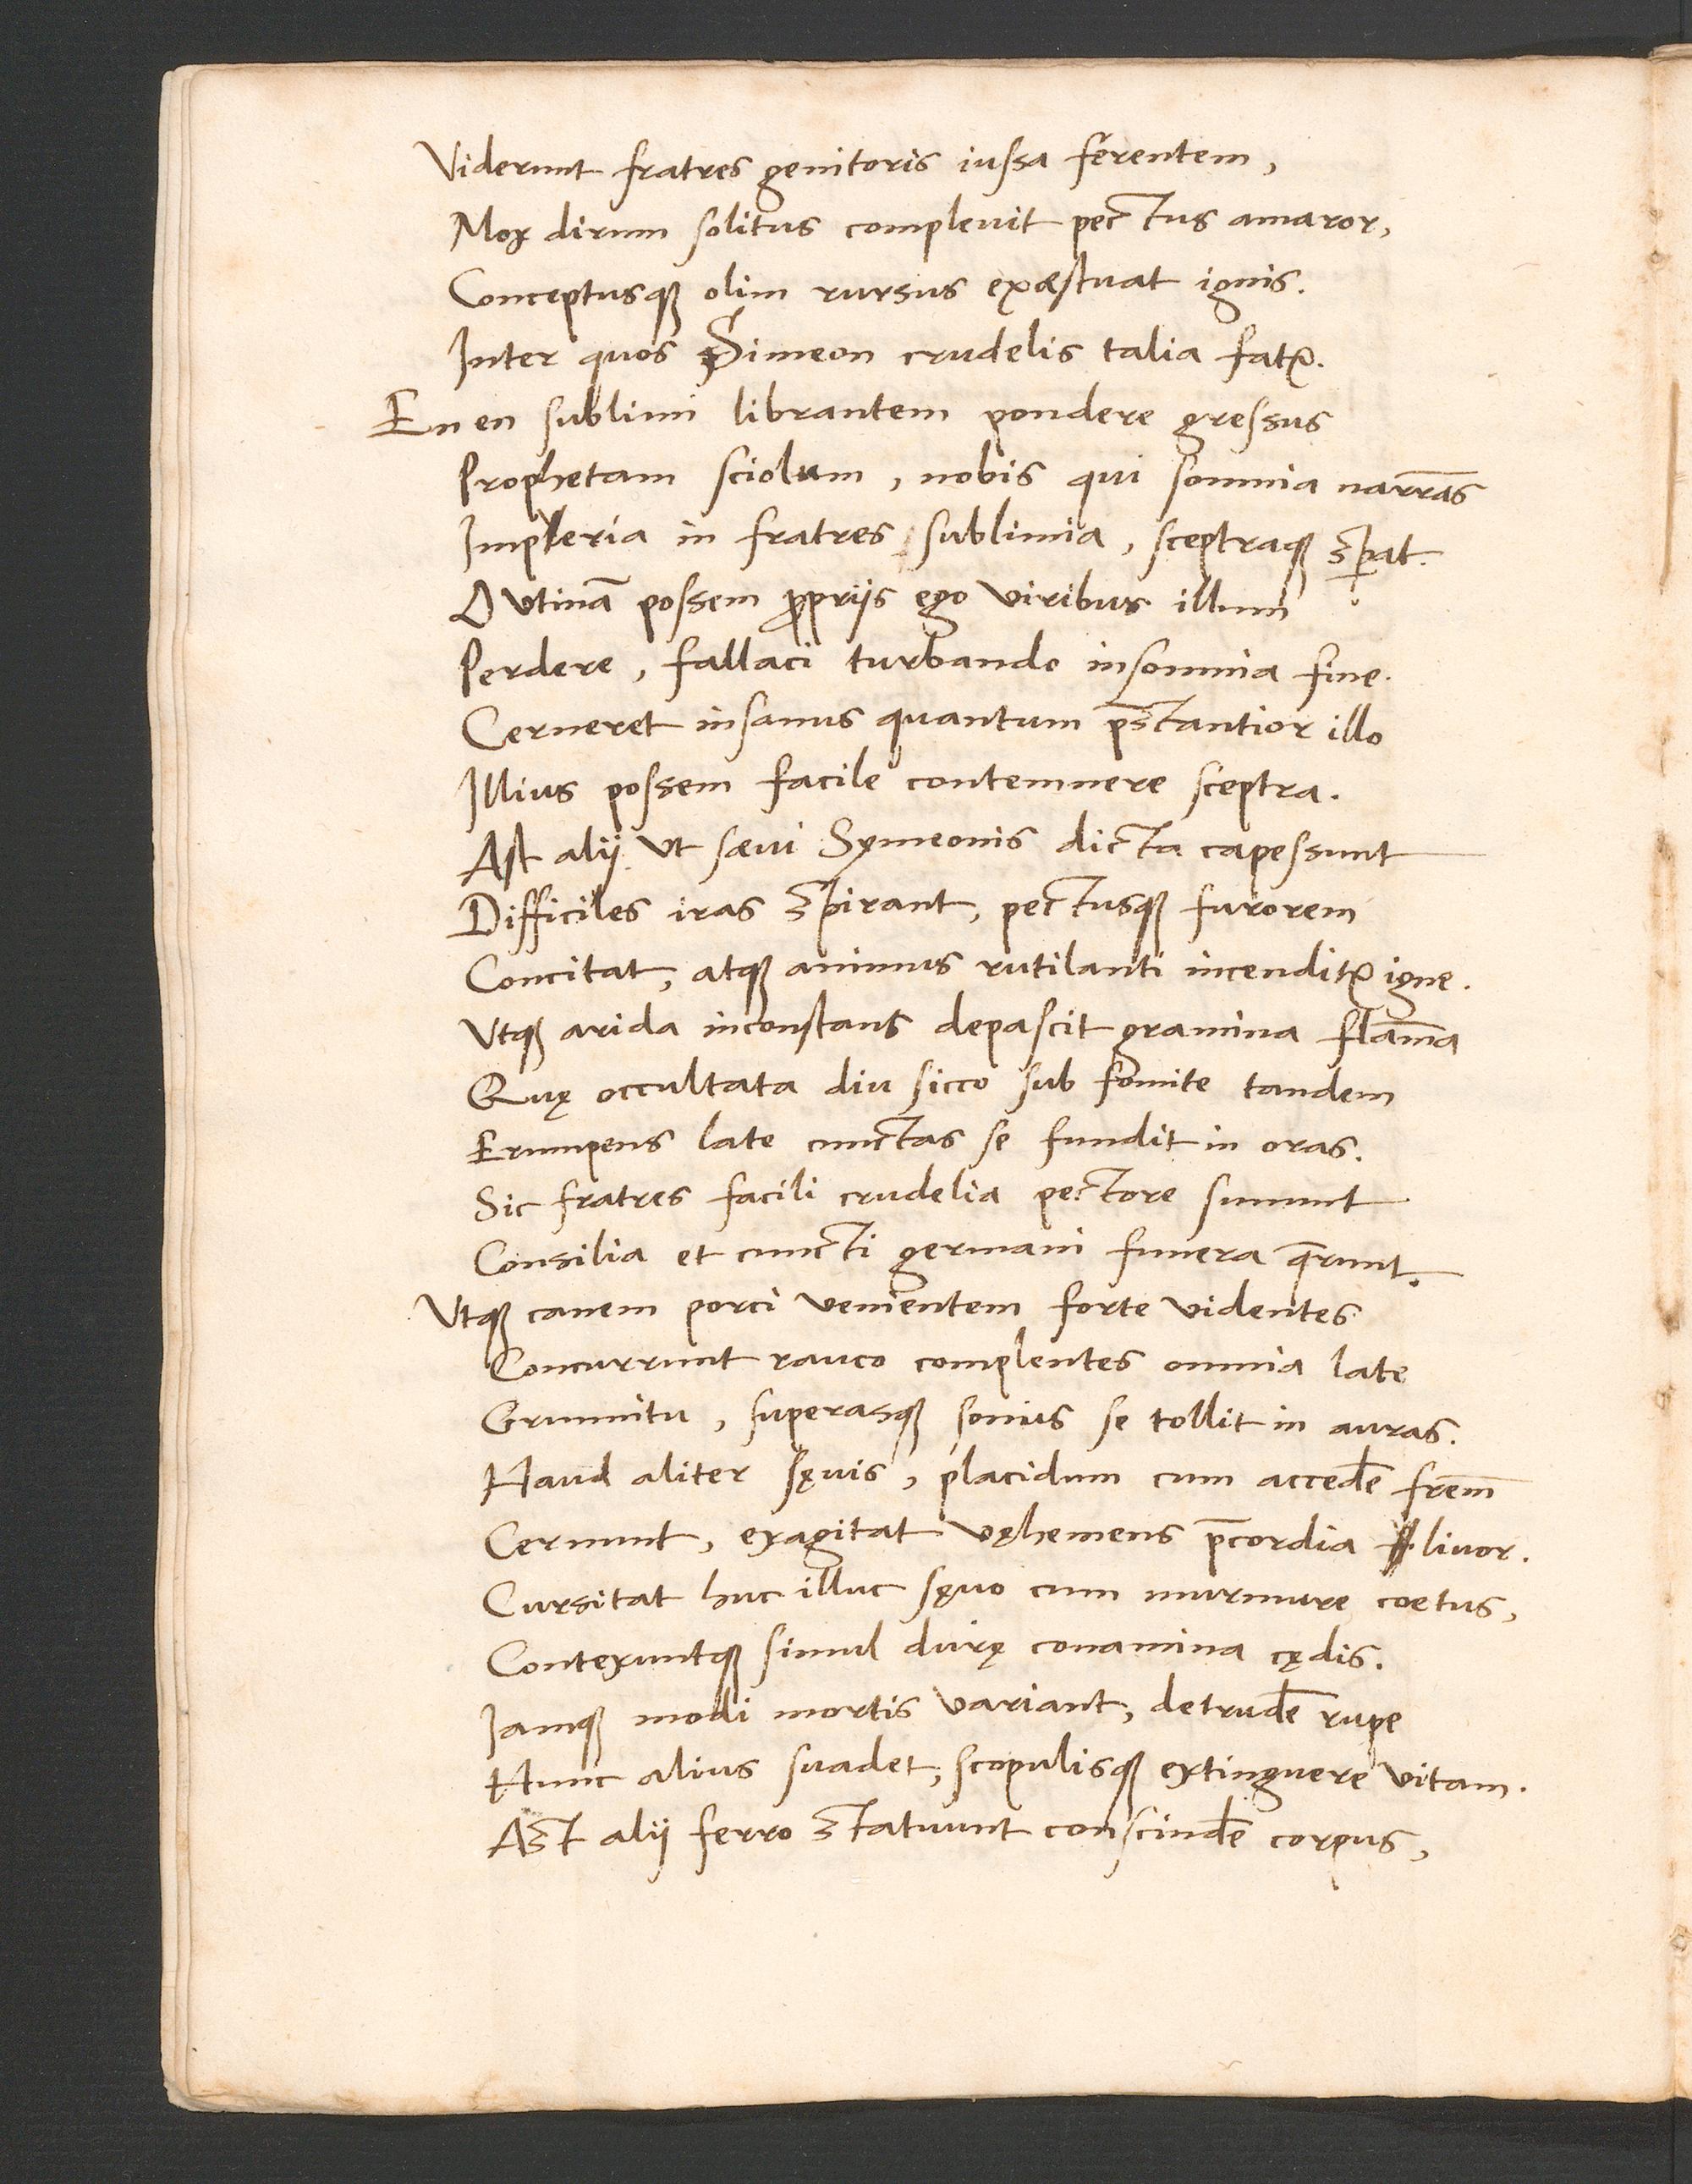 Viderunt fratres genitoris iussa ferentem,
Mox dirum solitus complevit pectus amaror,
Conceptusq́; olim rursus exæstuat ignis.
Inter quos Simeon crudelis talia fatꝛ.
En en sublimi librantem pondere gressus
Prophetam sciolum, nobis qui somnia narrās
Imperia in fratres sublimia, sceptraq́; spat.
O utinā possem ꝓpriis ego viribus illum
Perdere, fallaci turbando insomnia fine.
Cerneret insanus quantum p̄stantior illo
Illius possem facile contemnere sceptra.
Ast alij ut sæui Symeonis dicta capessunt
Difficiles iras spirant, pectusq́; furorem
Concitat, atq́; animus rutilanti incenditꝛ igne.
Vtq́; arida inconstans depascit gramina flam̄a
Quę occultata diu sicco sub fomite tandem
Erumpens late cunctas se fundit in oras.
Sic fratres facili crudelia pectore sumunt
Consilia et cuncti germani funera q̄runt.
Vtq́; canem porci venientem forte videntes
Concurrunt rauco complentes omnia late
Grunnitu, superasq́; sonius se tollit in auras.
Haud aliter sęuis, placidum cum acceder̄e fr̄em
Cernunt, exagitat vęhemens p̄cordia livor.
Cursitat huc illuc sęuo cum murmure coetus,
Contexuntq́; simul durę conamina cędis.
Iamq́; modi mortis variant, detruder̄e rupe
Hunc alius suadet, scopulisq́; extinguere vitam.
Ast alij ferro statuunt conscinder̄e corpus,